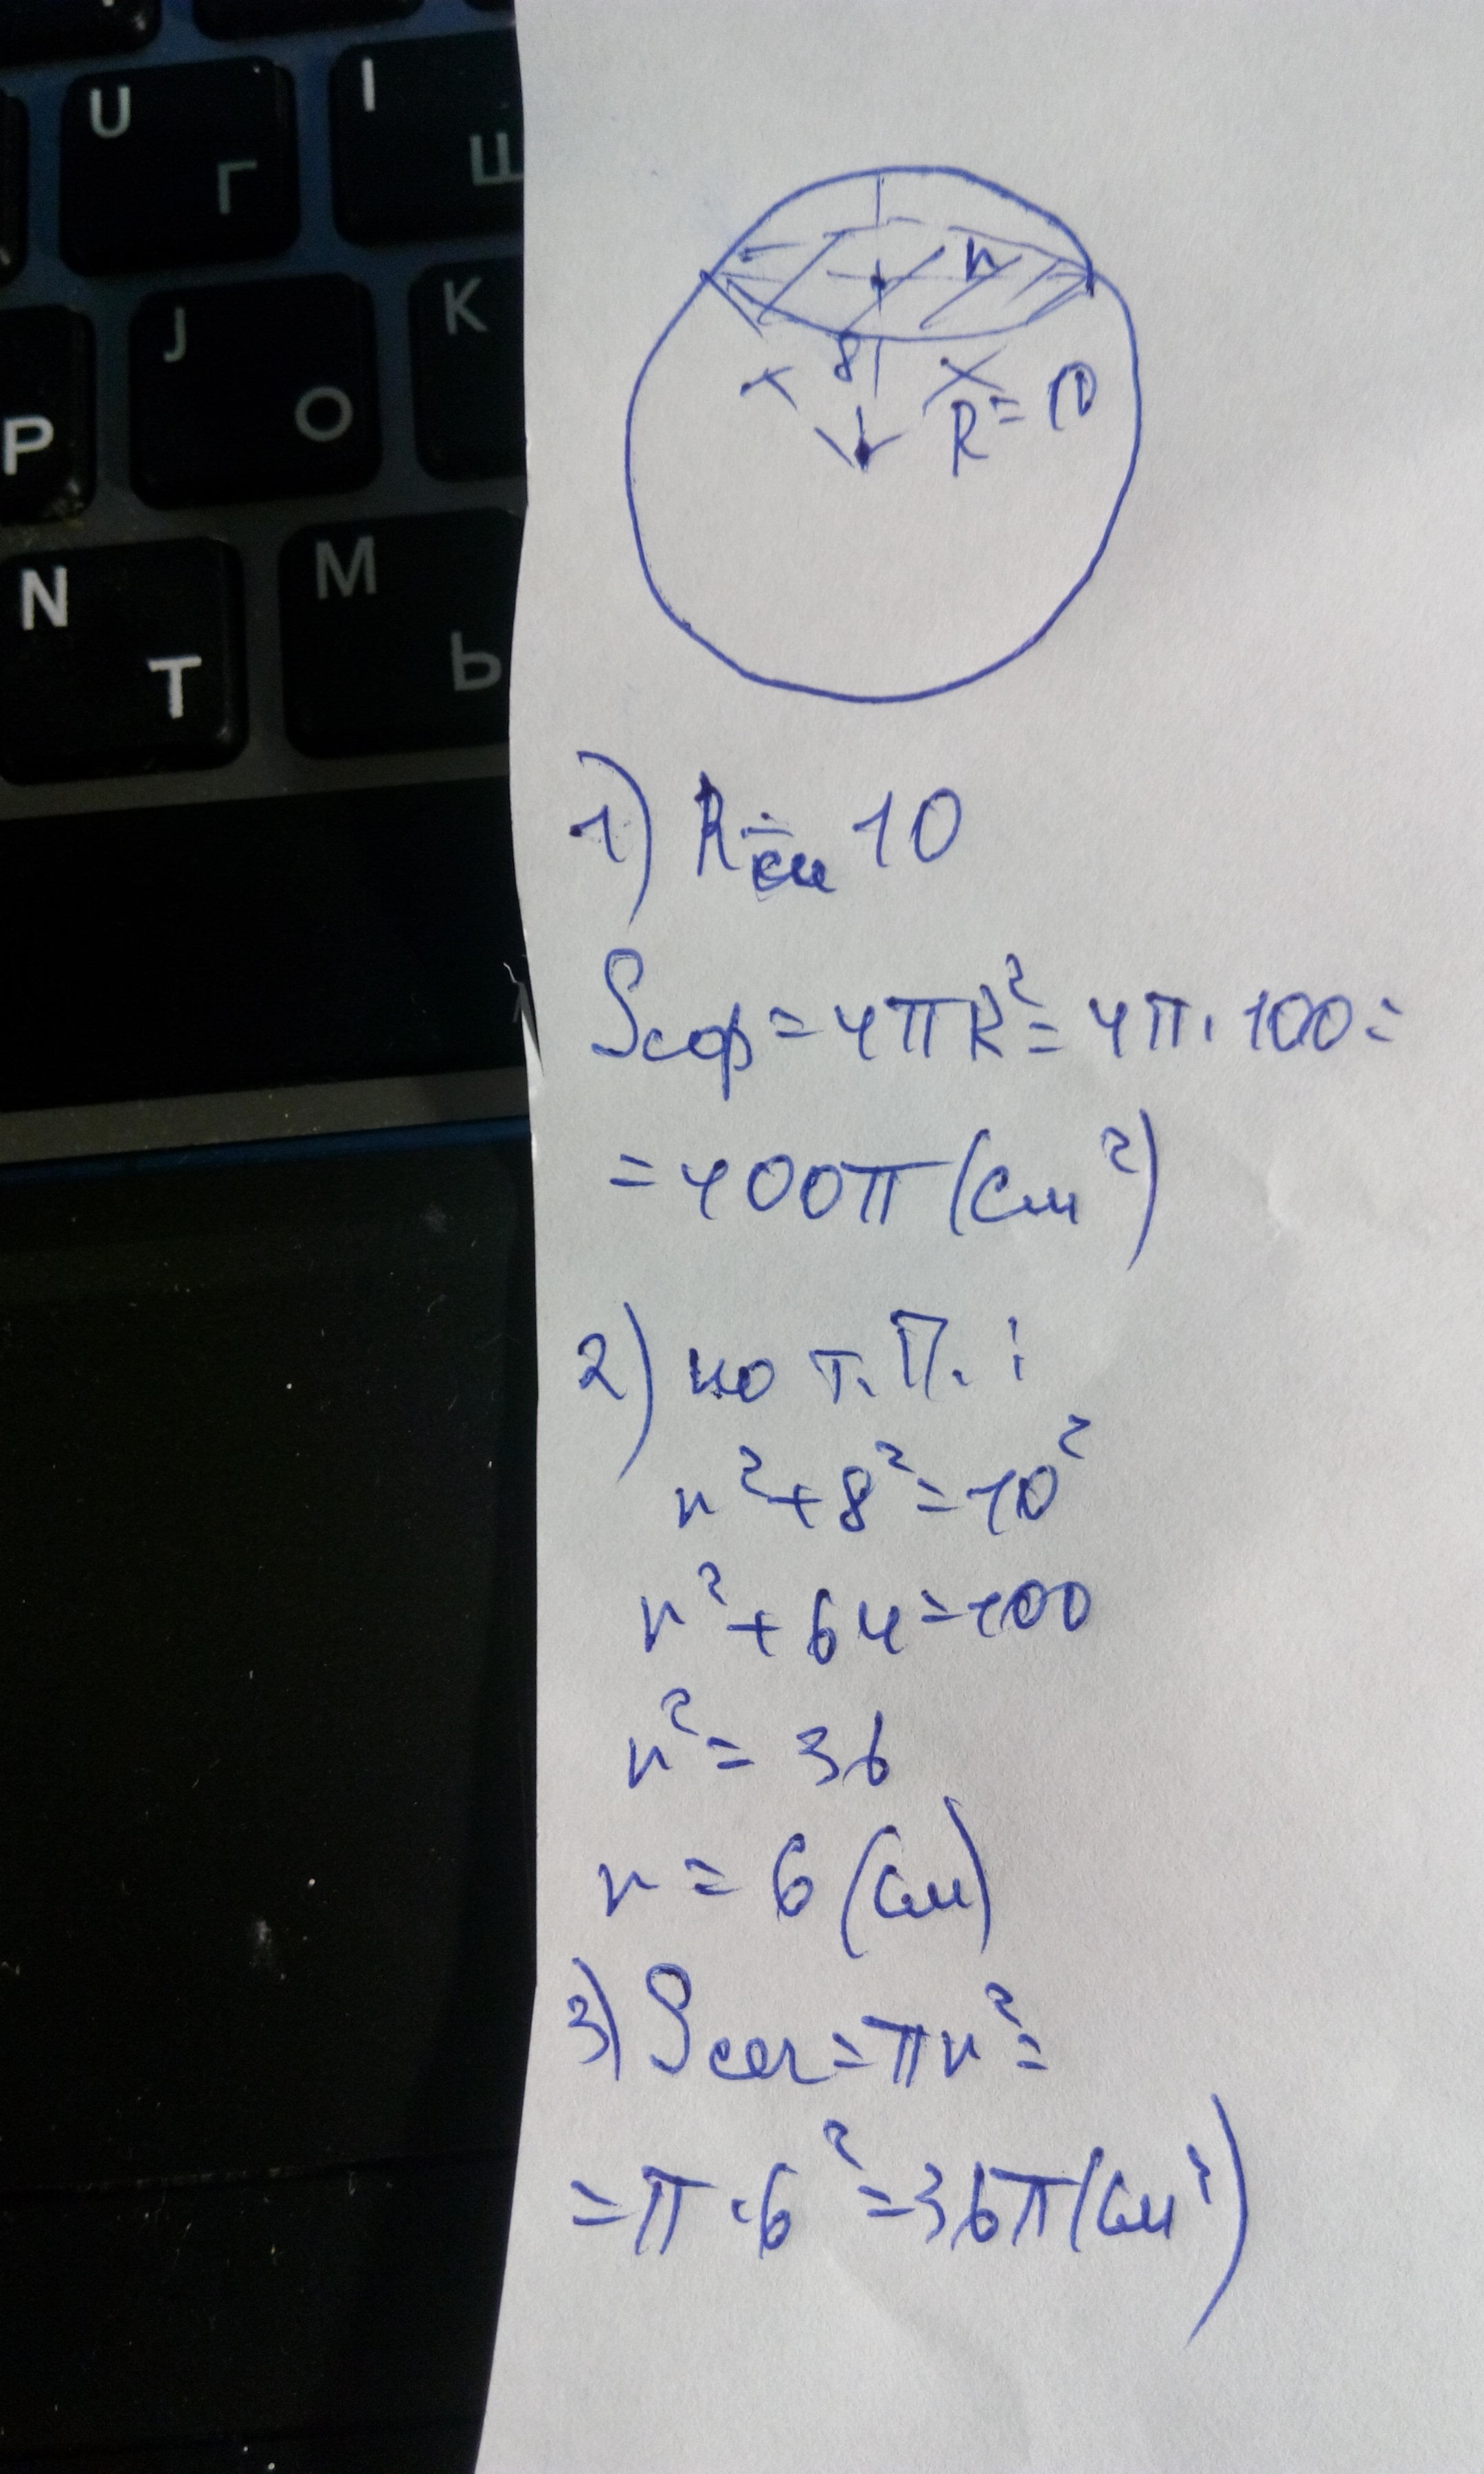 U Г
I Ш
J О
K
P
N Т
M Ь
r
8
R = 10
1) R = 10
см
Sсф = 4πR² = 4π · 100 =
= 400π (см²)
2) по т. П. :
r² + 8² = 10²
r² + 64 = 100
r² = 36
r = 6 (см)
3) Sсеч = πr² =
= π · 6² = 36π (см²)